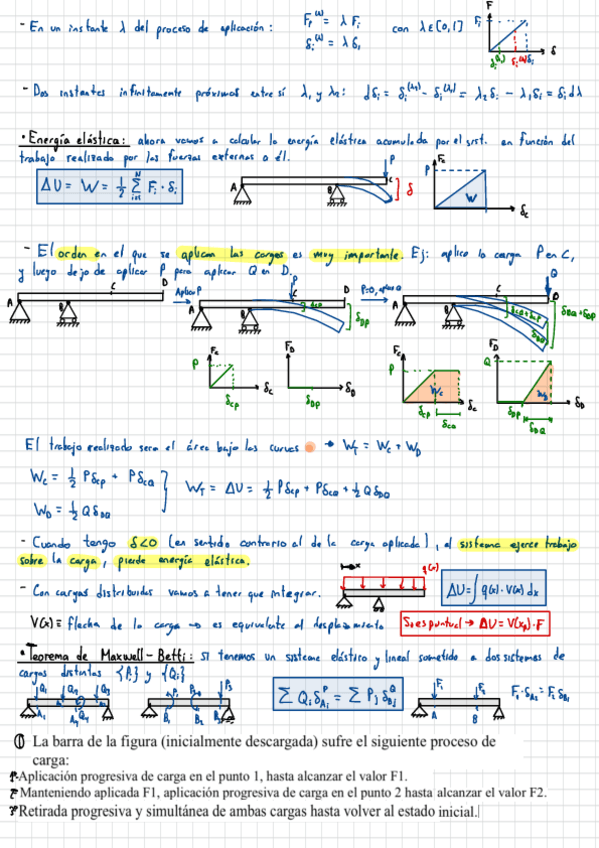 - En un instante λ del proceso de aplicación: Fᵢ^(λ) = λ Fᵢ con λ ∈ [0,1]
δᵢ^(λ) = λ δᵢ
F
Fᵢ
δ
- Dos instantes infinitamente próximos entre sí λ₁ y λ₂: dδᵢ = δᵢ^(λ₂) - δᵢ^(λ₁) = λ₂δᵢ - λ₁δᵢ = δᵢ dλ
• Energía elástica: ahora vamos a calcular la energía elástica acumulada por el sist. en función del
trabajo realizado por las fuerzas externas a él.
ΔU = W = 1/2 Σ_{i=1}^{N} Fᵢ · δᵢ
A B C P δ
P F_c W δ_c
- El orden en el que se aplican las cargas es muy importante. Ej: aplico la carga P en C,
y luego dejo de aplicar P para aplicar Q en D.
A B C D Aplico P A B P C D δ_CP δ_DP P=0, aplico Q A B C Q D δ_DQ + δ_DP
P F_C δ_CP δ_C F_D δ_DP δ_D P F_C W_C δ_CP δ_CQ δ_C Q F_D W_D δ_DP δ_DQ δ_D
El trabajo realizado será el área bajo las curvas → W_T = W_C + W_D
W_C = 1/2 P δ_CP + P δ_CQ
W_T = ΔU = 1/2 P δ_CP + P δ_CQ + 1/2 Q δ_DQ
W_D = 1/2 Q δ_DQ
- Cuando tengo δ<0 (en sentido contrario al de la carga aplicada), el sistema ejerce trabajo
sobre la carga, pierde energía elástica.
- Con cargas distribuidas vamos a tener que integrar. x q(x) ΔU = ∫ q(x) · V(x) dx
V(x) ≡ flecha de la carga → es equivalente al desplazamiento Si es puntual → ΔU = V(x_F) · F
• Teorema de Maxwell-Betti: si tenemos un sistema elástico y lineal sometido a dos sistemas de
cargas distintas {Pⱼ} y {Qᵢ}
Σ Qᵢ δ_Aᵢ^P = Σ Pⱼ δ_Bⱼ^Q
① La barra de la figura (inicialmente descargada) sufre el siguiente proceso de
carga:
1º Aplicación progresiva de carga en el punto 1, hasta alcanzar el valor F1.
2º Manteniendo aplicada F1, aplicación progresiva de carga en el punto 2 hasta alcanzar el valor F2.
3º Retirada progresiva y simultánea de ambas cargas hasta volver al estado inicial.